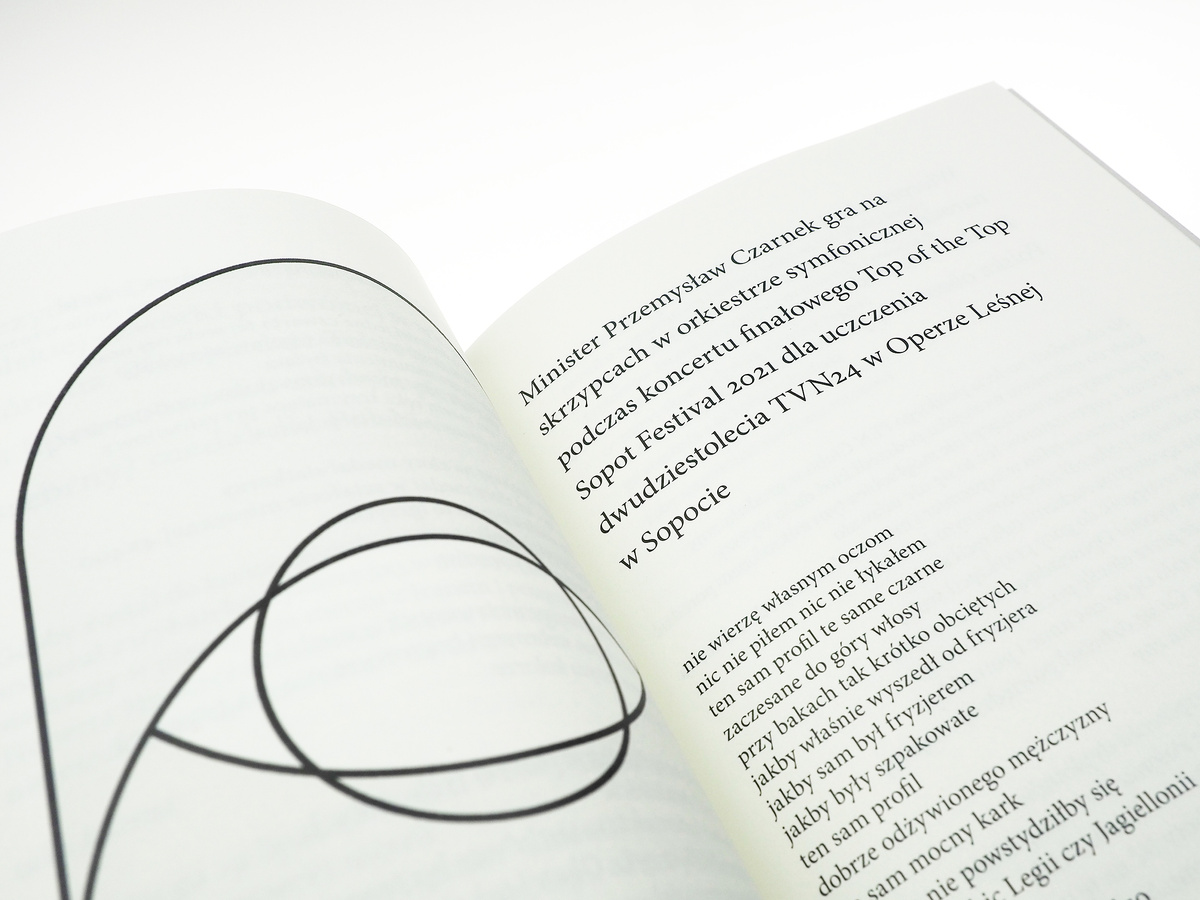 Minister Przemysław Czarnek gra na
skrzypcach w orkiestrze symfonicznej
podczas koncertu finałowego Top of the Top
Sopot Festival 2021 dla uczczenia
dwudziestolecia TVN24 w Operze Leśnej
w Sopocie
nie wierzę własnym oczom
nic nie piłem nic nie łykałem
ten sam profil te same czarne
zaczesane do góry włosy
przy bakach tak krótko obciętych
jakby właśnie wyszedł od fryzjera
jakby sam był fryzjerem
jakby były szpakowate
ten sam profil
dobrze odżywionego mężczyzny
sam mocny kark
nie powstydziłby się
Legii czy Jagiellonii